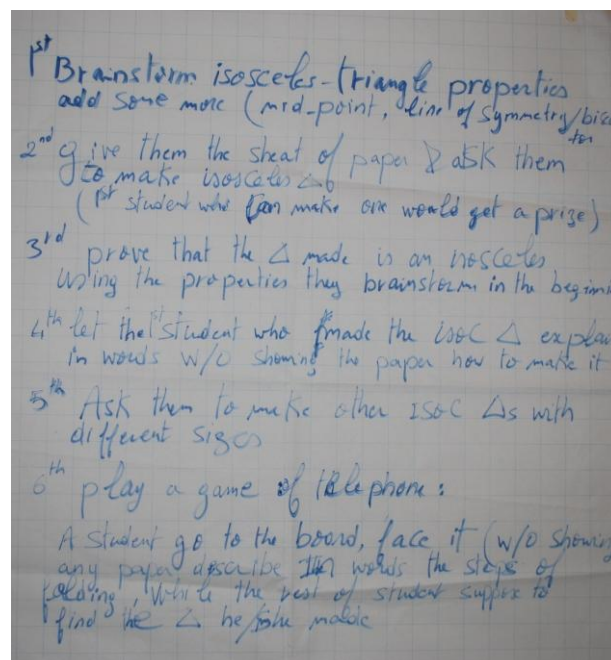 1st Brainstorm isosceles-triangle properties
add some more (mid-point, line of symmetry/bisec
tor
2nd give them the sheat of paper & ask them
to make isosceles △
(1st student who can make one would get a prize)
3rd prove that the △ made is an isosceles
using the properties they brainstorm in the beginn
4th let the 1st student who made the isoc △ explai
in words w/o showing the paper how to make it
5th Ask them to make other isoc △s with
different sizes
6th play a game of telephone:
A student go to the board, face it (w/o showing
any paper describe in words the steps of
folding, while the rest of student suppose to
find the △ he/she made